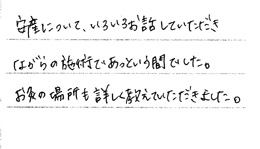 安産について、いろいろお話していただき
ながらの施術であっという間でした。
お灸の場所も詳しく教えていただきました。